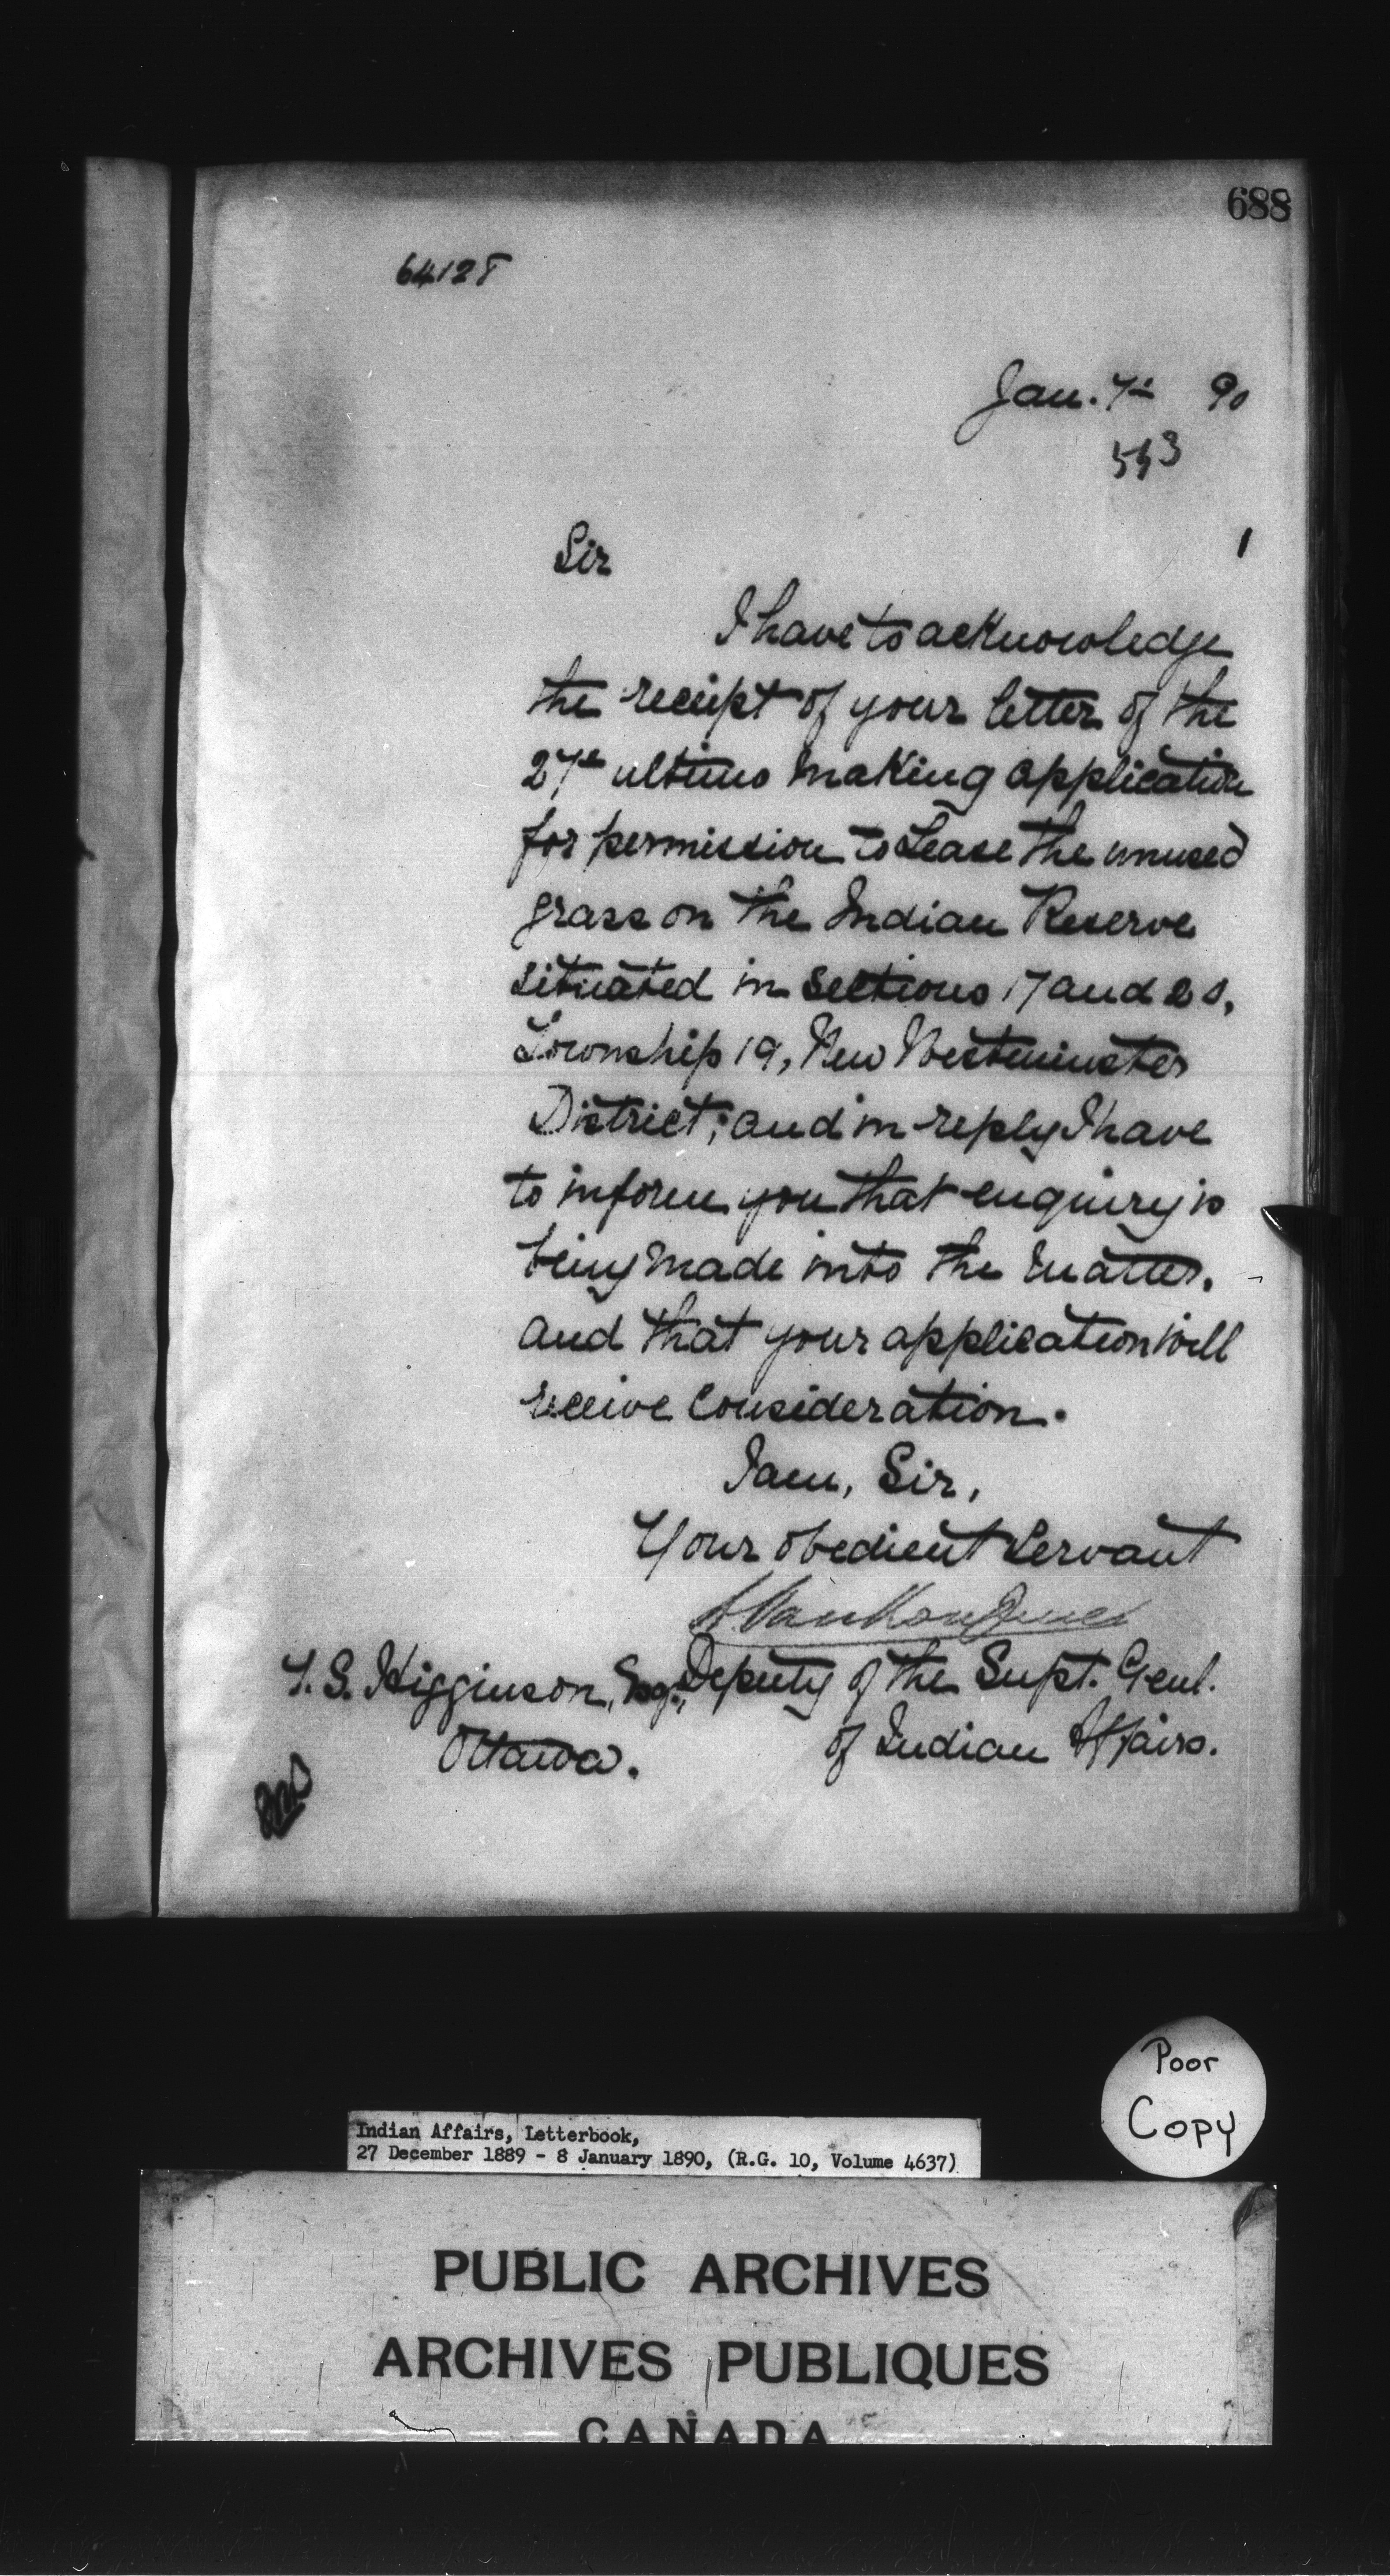 688
64128
Jan. 7th 90
593
Sir
I have to acknowledge
the receipt of your letter of the
27th ultimo making application
for permission to Lease the unused
grass on the Indian Reserve
situated in Sections 17 and 20,
Township 19, New Westminster
District; and in reply I have
to inform you that enquiry is
being made into the matter,
and that your application will
receive Consideration.
I am, Sir,
Your obedient Servant
L. VanKoughnet
T. S. Higginson, Esq., Deputy of the Supt. Genl.
Ottawa. of Indian Affairs.
Poor
Copy
Indian Affairs, Letterbook,
27 December 1889 - 8 January 1890, (R.G. 10, Volume 4637)
PUBLIC ARCHIVES
ARCHIVES PUBLIQUES
CANADA